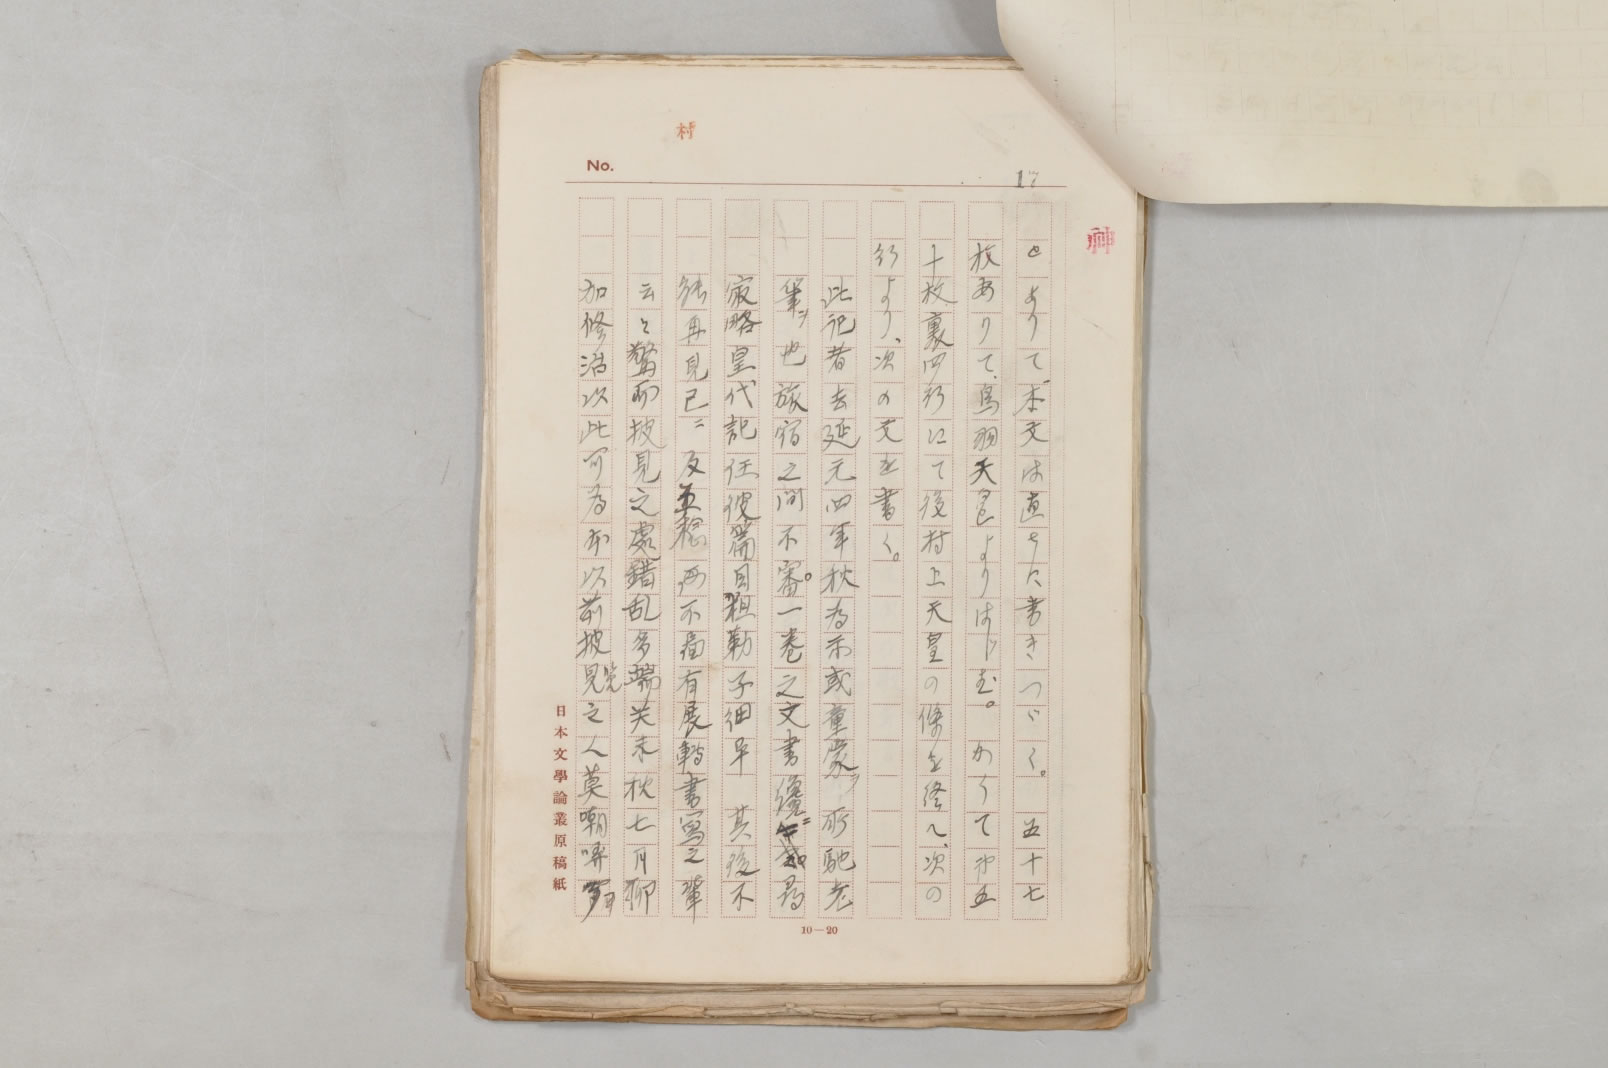 村
No.
17
神
とありて、本文は直ちに書きつゞく。五十七
枚ありて、鳥羽天皇よりはじむ。かくて第五
十枚裏四行にて後村上天皇の條を終へ、次の
行より、次の文を書く。
此記者去延元四年秋為示或童蒙ヲ所馳老
筆ヲ也旅宿之間不審。一巻之文書纔ニ尋
最略皇代記任彼篇目粗勒子細畢 其後不
能再見已ニ及五稔 両不圖有展轉書寫之輩
云々驚而披見之處錯乱多端癸未秋七月聊
加修治以此可為本以前披見覽之人莫嘲哢耳
10—20
日本文學論叢原稿紙